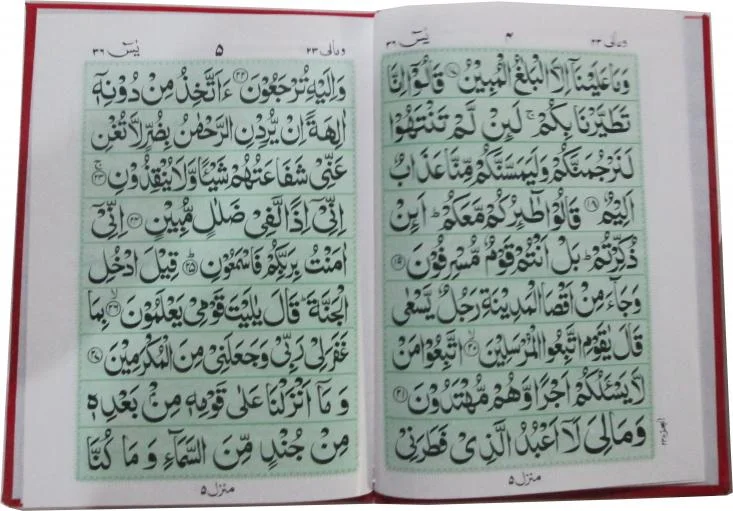 ومالی ٢٣ ٤ یٰسٓ ٣٦
وَمَا عَلَيْنَآ اِلَّا الْبَلٰغُ الْمُبِيْنُ ﴿١٧﴾ قَالُوْۤا اِنَّا
تَطَيَّرْنَا بِكُمْ ۚ لَىِٕنْ لَّمْ تَنْتَهُوْا
لَنَرْجُمَنَّكُمْ وَلَيَمَسَّنَّكُمْ مِّنَّا عَذَابٌ
اَلِيْمٌ ﴿١٨﴾ قَالُوْا طَآىِٕرُكُمْ مَّعَكُمْ ؕ اَىِٕنْ
ذُكِّرْتُمْ ؕ بَلْ اَنْتُمْ قَوْمٌ مُّسْرِفُوْنَ ﴿١٩﴾
وَجَآءَ مِنْ اَقْصَا الْمَدِيْنَةِ رَجُلٌ يَّسْعٰى
قَالَ يٰقَوْمِ اتَّبِعُوا الْمُرْسَلِيْنَ ﴿٢٠﴾ اتَّبِعُوْا مَنْ
لَّا يَسْـَٔلُكُمْ اَجْرًا وَّهُمْ مُّهْتَدُوْنَ ﴿٢١﴾
وَمَا لِىَ لَآ اَعْبُدُ الَّذِىْ فَطَرَنِىْ
منزل ٥
ومالی ٢٣ ٥ یٰسٓ ٣٦
وَاِلَيْهِ تُرْجَعُوْنَ ﴿٢٢﴾ ءَاَتَّخِذُ مِنْ دُوْنِهٖۤ
اٰلِهَةً اِنْ يُّرِدْنِ الرَّحْمٰنُ بِضُرٍّ لَّا تُغْنِ
عَنِّىْ شَفَاعَتُهُمْ شَيْـًٔا وَّلَا يُنْقِذُوْنِ ﴿٢٣﴾
اِنِّىْۤ اِذًا لَّفِىْ ضَلٰلٍ مُّبِيْنٍ ﴿٢٤﴾ اِنِّىْۤ
اٰمَنْتُ بِرَبِّكُمْ فَاسْمَعُوْنِ ﴿٢٥﴾ قِيْلَ ادْخُلِ
الْجَنَّةَ ؕ قَالَ يٰلَيْتَ قَوْمِىْ يَعْلَمُوْنَ ﴿٢٦﴾ بِمَا
غَفَرَ لِىْ رَبِّىْ وَجَعَلَنِىْ مِنَ الْمُكْرَمِيْنَ ﴿٢٧﴾
وَمَآ اَنْزَلْنَا عَلٰى قَوْمِهٖ مِنْۢ بَعْدِهٖ
مِنْ جُنْدٍ مِّنَ السَّمَآءِ وَمَا كُنَّا
منزل ٥